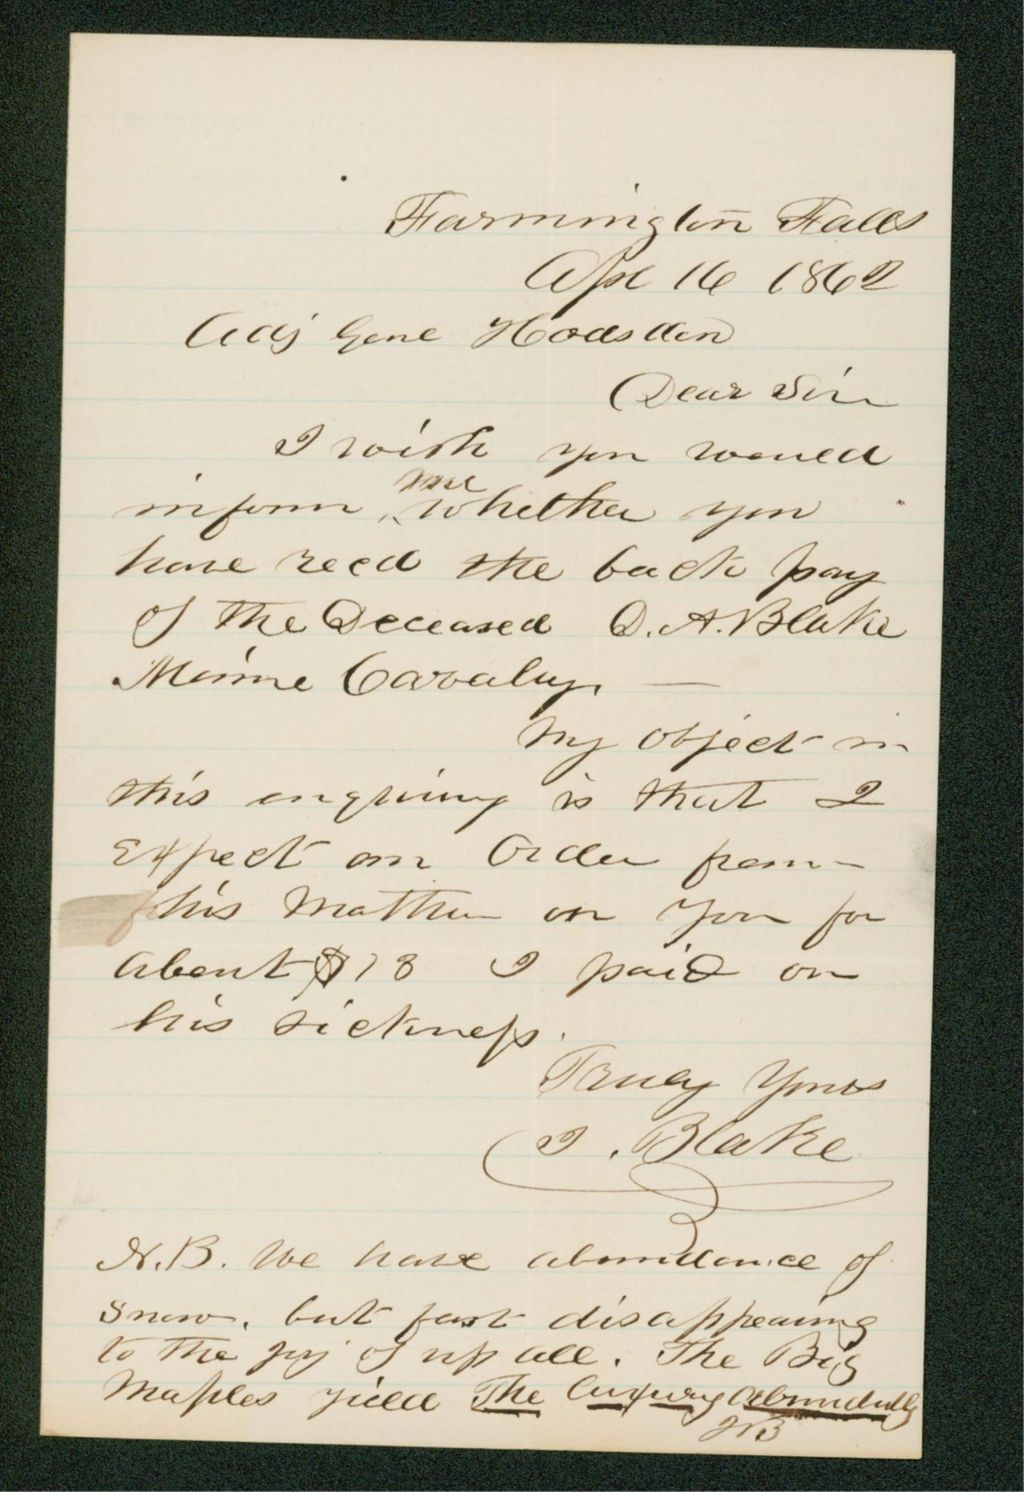 Farmington Falls
Apl 16 1862
Adj Gene Hodsdon
Dear Sir
I wish you would
me
inform whether you
have recd the back pay
of the Deceased D. A. Blake
Maine Cavalry. —
My object in
this enquiring is that I
Expect an Order from
his Mother on you for
about $18 I paid on
his sickness.
Truly Yours
I. Blake
N.B. We have abundance of
snow, but fast disappearing
to the joy of us all. The Big
Maples yield The luxury abundully